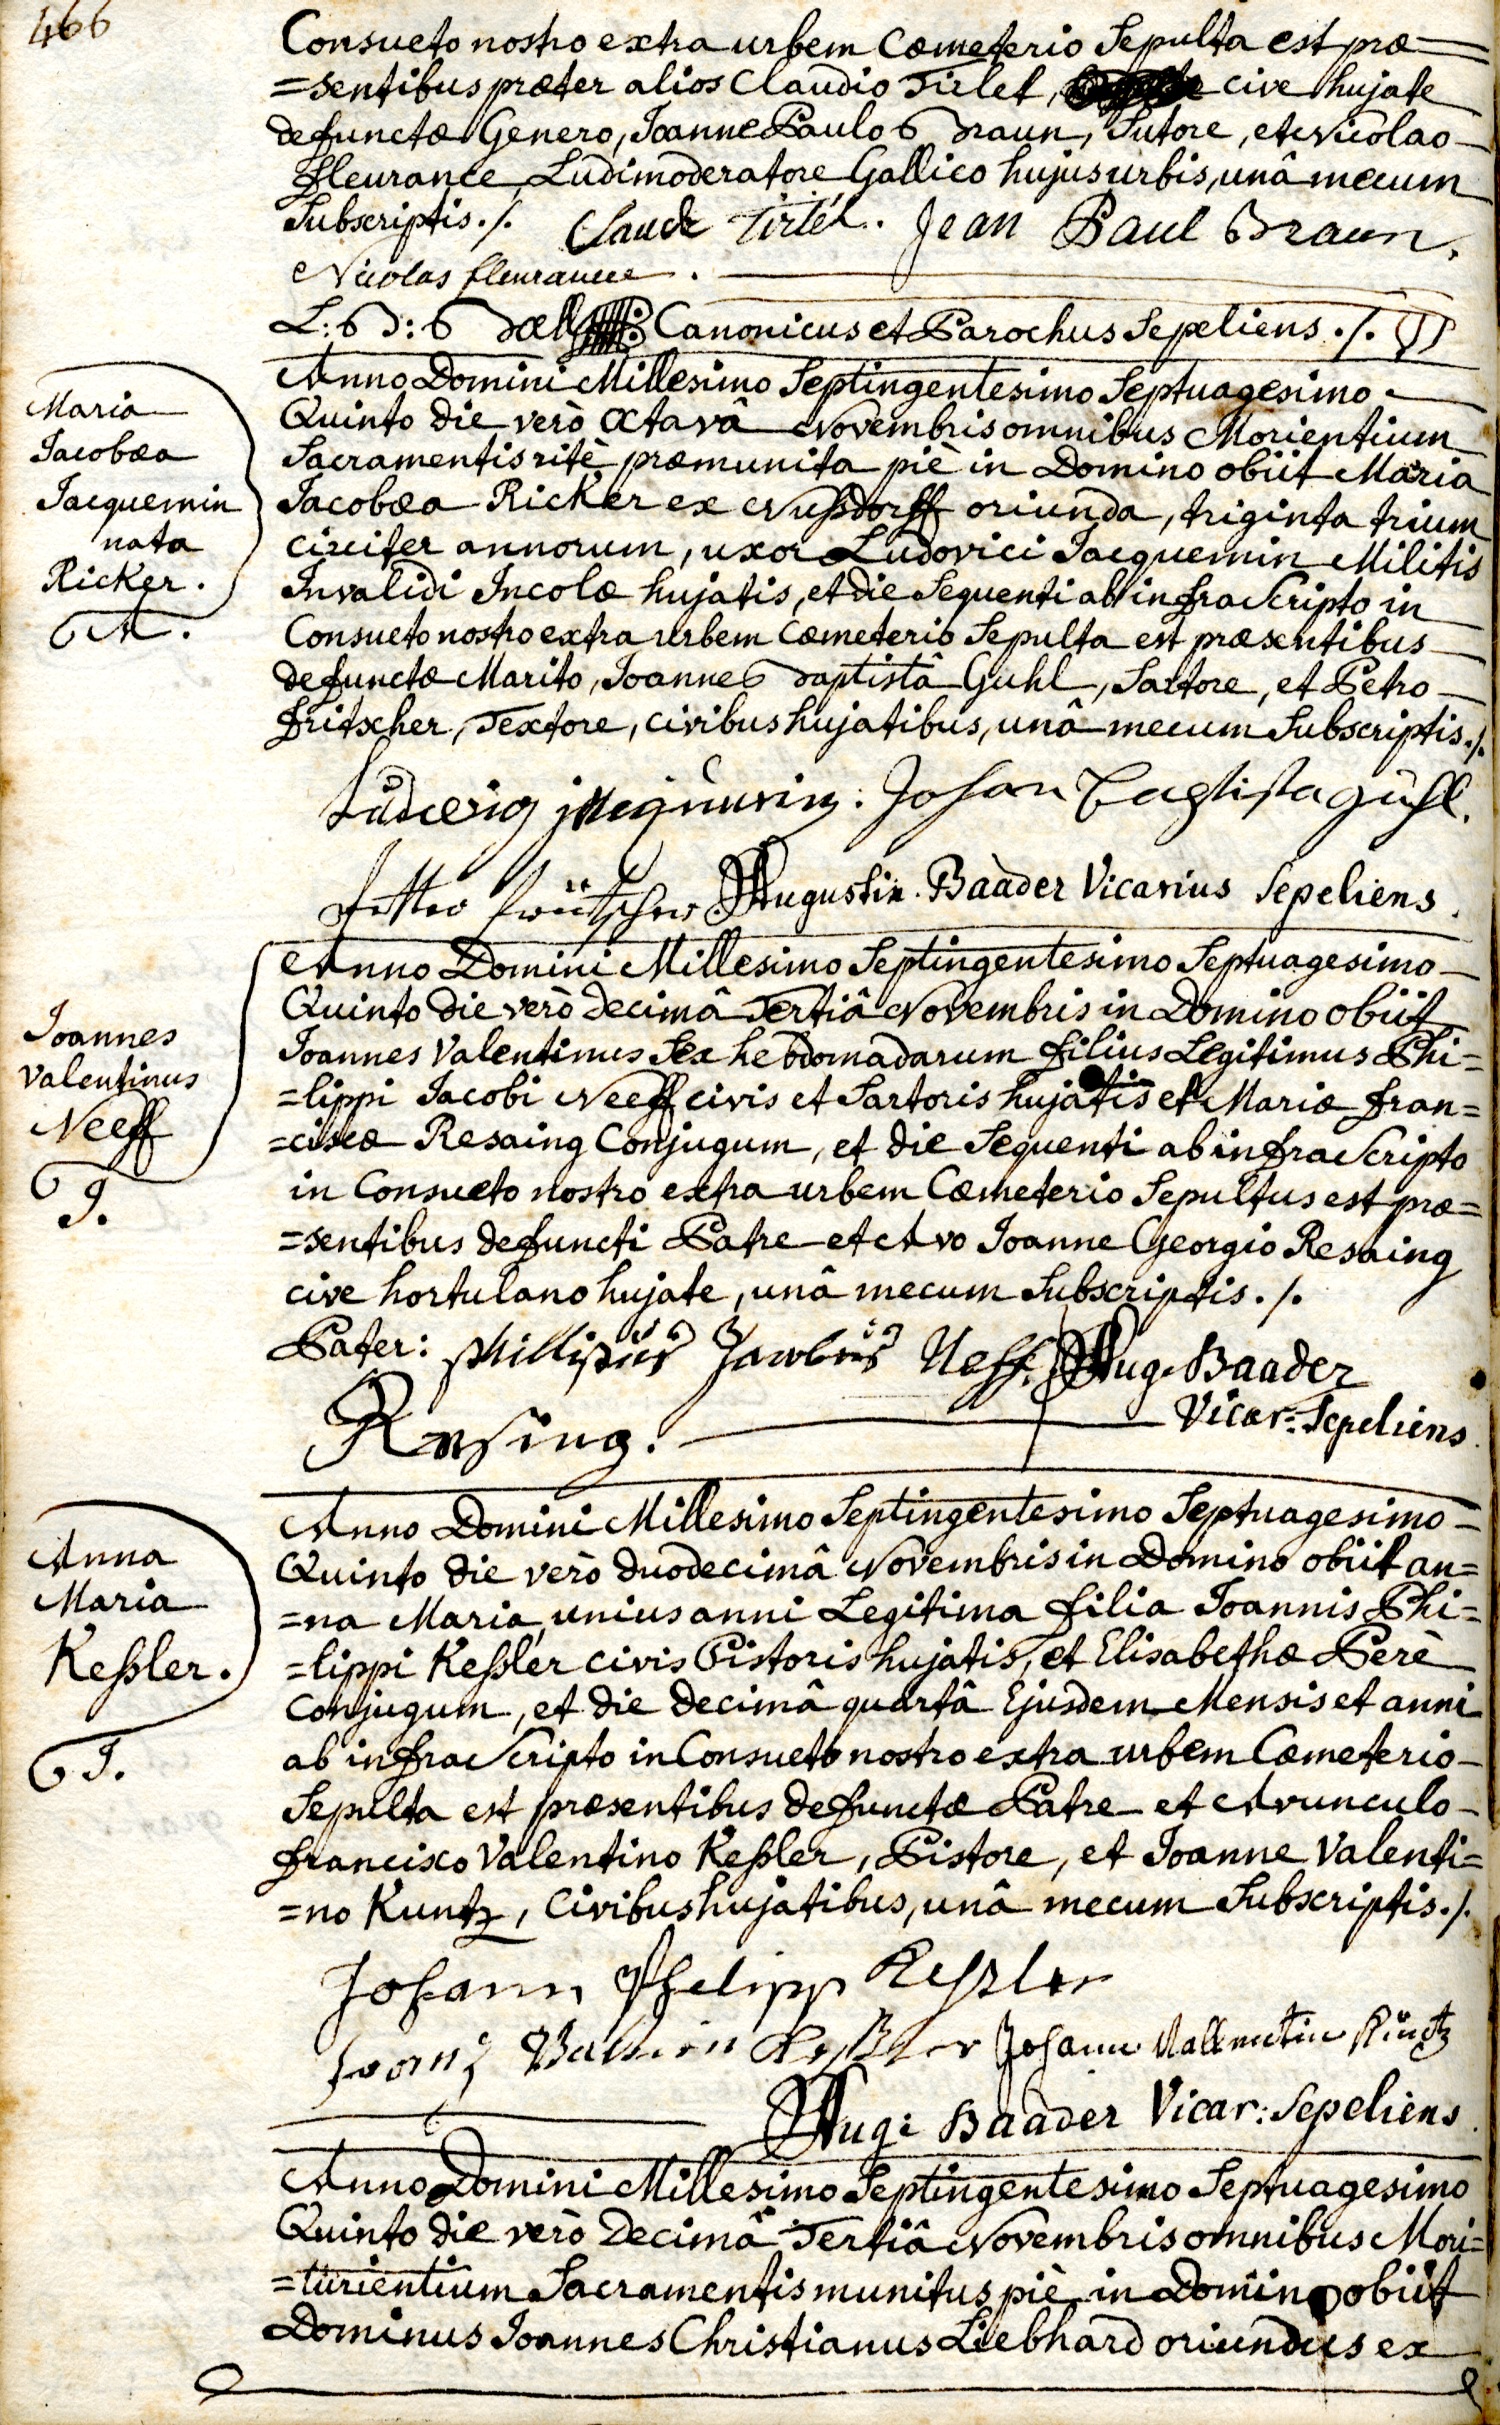 466
Consueto nostro extra urbem Cœmeterio Sepulta est præ=
=sentibus præter alios Claudio Tirlet, cive hujate
defunctæ Genero, Joanne Paulo Braun, Sutore, et Nicolao
fleurance Ludimoderatore Gallico hujus urbis, unâ mecum
Subscriptis ./. Claude Tirlét. Jean Paul Braun.
Nicolas fleurance.
Canonicus et Parochus Sepeliens ./.
Maria
Jacobæa
Jacquemin
nata
Ricker.
A.
Anno Domini Millesimo Septingentesimo Septuagesimo
Quinto die verò Octavâ Novembris omnibus Morientium
Sacramentis ritè præmunita piè in Domino obiit Maria
Jacobæa Ricker ex Nußdorff oriunda, triginta trium
circiter annorum, uxor Ludovici Jacquemin Militis
Invalidi Incolæ hujatis, et die Sequenti ab infra Scripto in
Consueto nostro extra urbem Cœmeterio Sepulta est præsentibus
defunctæ Marito, Joanne Baptistâ Guhl, Sartore, et Petro
fritscher, Textore, civibus hujatibus, unâ mecum Subscriptis ./.
Johan Baptista Guhl.
Augustin. Baader Vicarius Sepeliens.
Joannes
Valentinus
Neeff
J.
Anno Domini Millesimo Septingentesimo Septuagesimo
Quinto die verò decimâ Tertiâ Novembris in Domino obiit
Joannes Valentinus Sex hebdomadarum filius Legitimus Phi=
=lippi Jacobi Neeff civis et Sartoris hujatis et Mariæ fran=
=ciscæ Resaing Conjugum, et die Sequenti ab infra Scripto
in Consueto nostro extra urbem Cœmeterio Sepultus est præ=
=sentibus defuncti Patre et Avo Joanne Georgio Resaing
cive hortulano hujate, unâ mecum Subscriptis ./.
Pater: Phillipus Jacobus Neff. Aug. Baader
Resing. Vicar: Sepeliens
Anna
Maria
Keßler.
J.
Anno Domini Millesimo Septingentesimo Septuagesimo
Quinto die verò duodecimâ Novembris in Domino obiit an=
=na Maria, unius anni Legitima filia Joannis Phi=
=lippi Keßler civis Pistoris hujatis, et Elisabethæ Perè
Conjugum, et die decimâ quartâ Ejusdem Mensis et anni
ab infra Scripto in Consueto nostro extra urbem Cœmeterio
Sepulta est præsentibus defunctæ Patre et Avunculo
francisco Valentino Keßler, Pistore, et Joanne Valenti=
=no Kuntz, Civibus hujatibus, unâ mecum Subscriptis ./.
Johann Philipp Keßler
Johann Vallentin Kuntz
Aug: Baader Vicar: Sepeliens
Anno Domini Millesimo Septingentesimo Septuagesimo
Quinto die verò Decimâ Tertiâ Novembris omnibus Mori=
=turientium Sacramentis munitus piè in Domino obiit
Dominus Joannes Christianus Liebhard oriundus ex